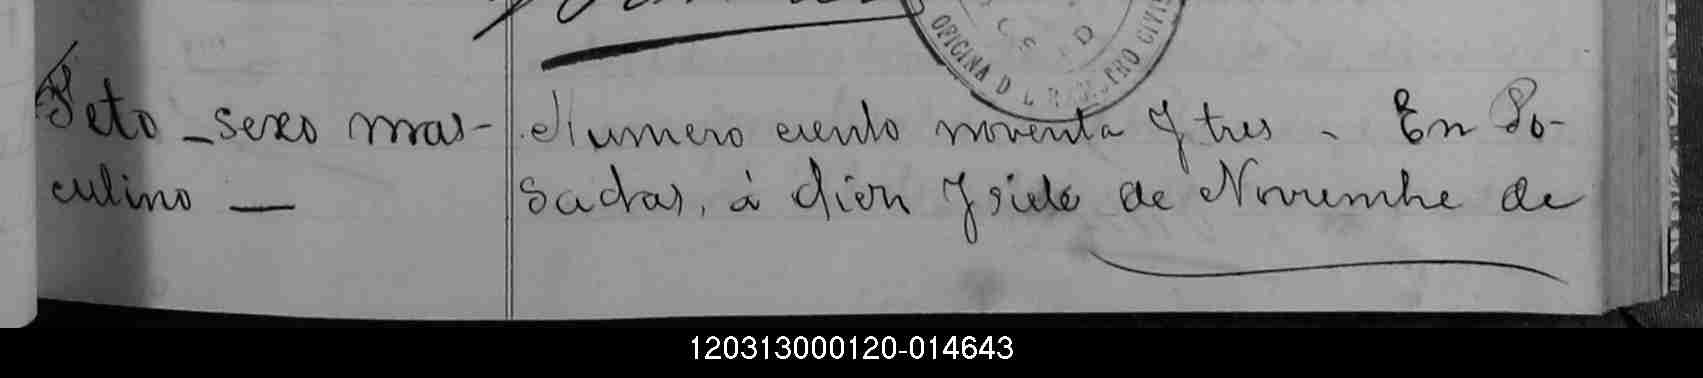 Feto - sexo mas-
culino —
Numero ciento noventa y tres - En Po-
sadas, á diez y siete de Noviembre de
OFICINA D L R
120313000120-014643